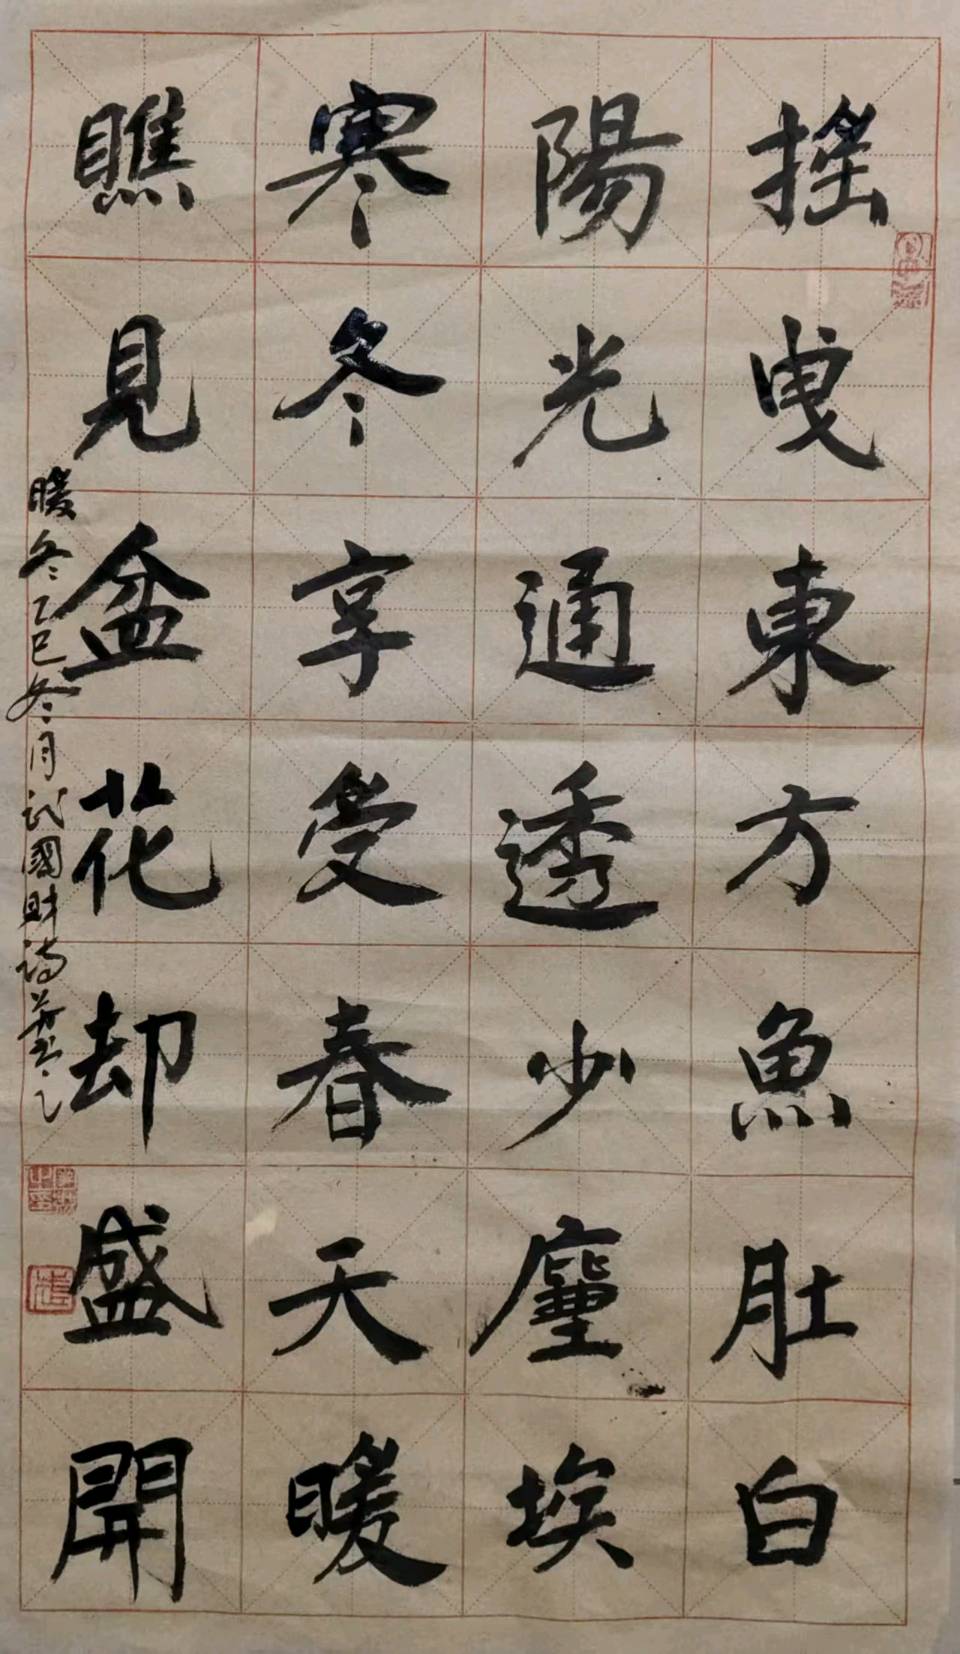 搖曳東方魚肚白
陽光通透少塵埃
寒冬享受春天暖
瞧見盆花却盛開
暖冬乙巳冬月武國財詩并書